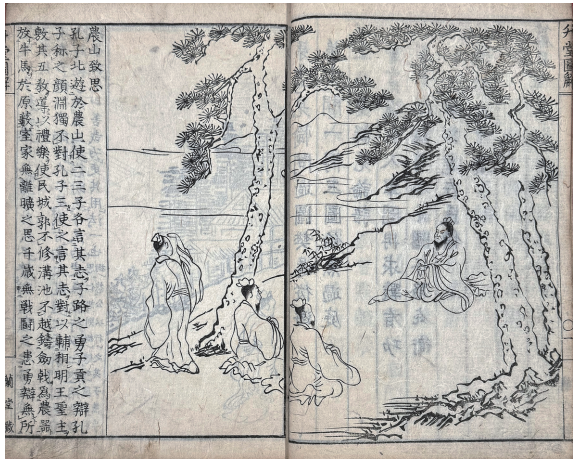 農山致思
孔子北遊於農山使二三子各言其志子路之勇子貢之辯孔
子称之顔淵獨不對孔子三使之言其志對以輔相明王聖主
敷其五教導以禮樂使民城郭不修溝池不越鑄劔戟爲農器
放牛馬於原藪室家無離曠之思千歳無戰鬪之患勇辯無所